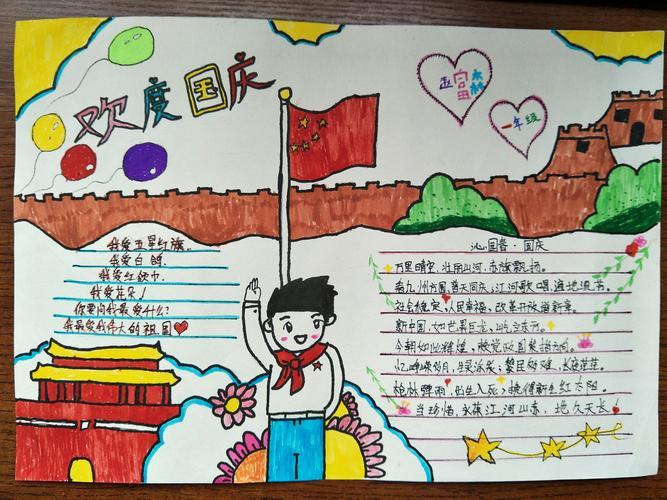 欢度国庆
孟富森
一年级
我爱五星红旗。
我爱白鸽。
我爱红领巾。
我爱花朵！
你要问我最爱什么？
我最爱我伟大的祖国
沁园春·国庆
万里晴空，壮丽山河，赤旗飘扬。
看九州方圆，普天同庆，江河歌唱，遍地流芳。
社会稳定，人民幸福，改革开放谱新章。
新中国，如世界巨龙，屹立东方。
今朝如此辉煌，
忆峥嵘岁月，黎民的难，
枪林弹雨，出生入死，换得新生红太阳。
当珍惜，永葆江河山赤，地久天长！